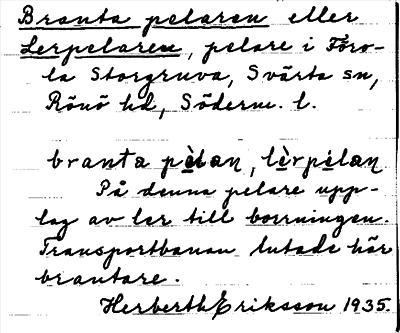 Branta pelaren eller
Lerpelaren, pelare i Föro-
la Storgruva, Svärta sn,
Rönö hd, Söderm. l.
branta pèlaɳ, lèrpèlaɳ
På denna pelare upp-
lag av ler till borrningen.
Transportbanan lutade här
brantare.
Herberth Eriksson 1935.